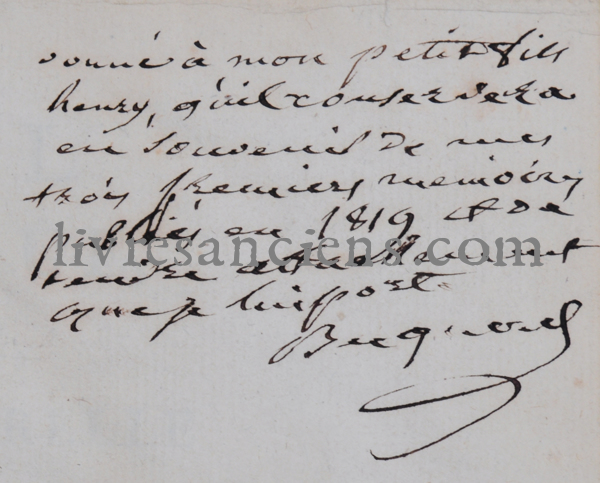 donné à mon petit fils
henry, qu'il conservera
en souvenir de mes
trois premiers memoires
publiés en 1819 et de
livresanciens.com
tendre attachement
que je lui porte
Becquerel